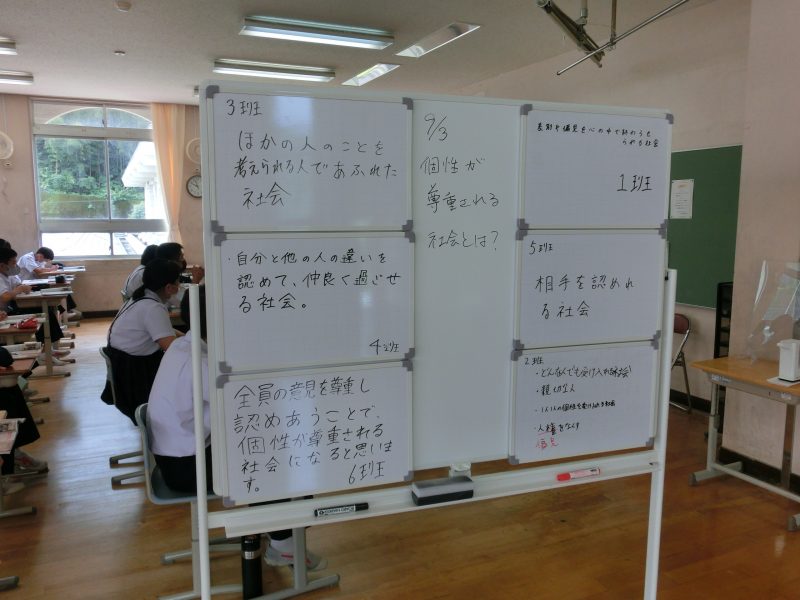 3班
ほかの人のことを
考えられる人であふれた
社会
・自分と他の人の違いを
認めて、仲良く過ごせ
る社会。
4班
全員の意見を尊重し
認めあうことで、
個性が尊重される
社会になると思いま
す。
6班
9/3
個性が
尊重される
社会とは?
差別や偏見を心の中で
られる社会
1班
5班
相手を認めれ
る社会
2班
・どんな人でも受け入れ
・親切な人
・1人1人の個性を
・人権をなくす
偏見